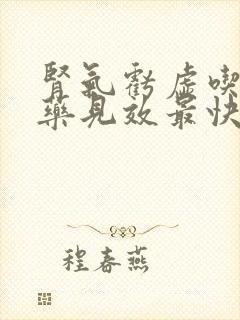 腎氣虧虛喫
藥見效最快
程春燕